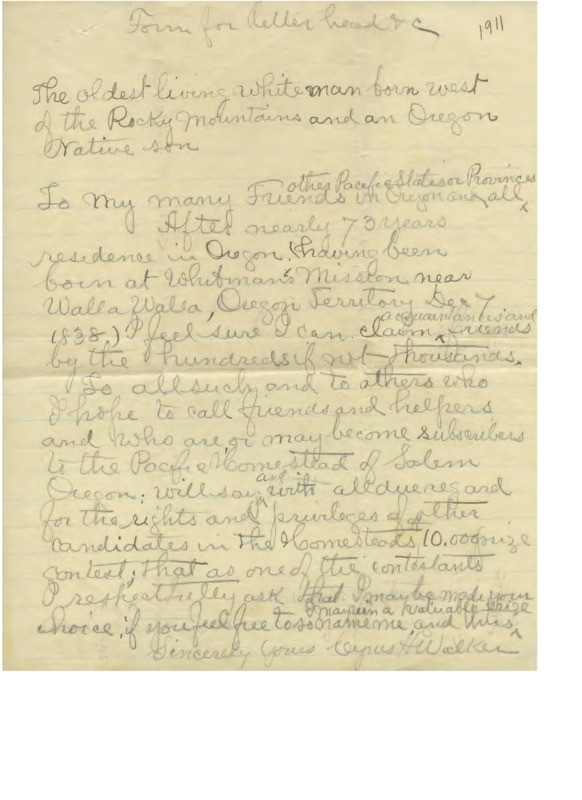 Form for letter head & C
1911
The oldest living white man born west
of the Rocky Mountains and an Oregon
Native son
other Pacific States or Provinces
To My many Friends in Oregon and all
After nearly 73 years
residence in Oregon, (having been
born at Whitman's Mission near
Walla Walla, Oregon Territory Dec 7
acquaintances and
1838) I feel sure I can claim friends
by the hundreds if not thousands.
To all such and to others who
I hope to call friends and helpers
and who are or may become subscribers
to the Pacific Homestead of Salem
and
Oregon; will say, with all due regard
for the rights and privileges of other
candidates in the Homesteads 10.000 prize
contest; that as one of the contestants
I respectfully ask that I may be made your
I may win a valuable prize
choice, if you feel free to so name me, and thus
Sincerely Yours Cyrus H Walker